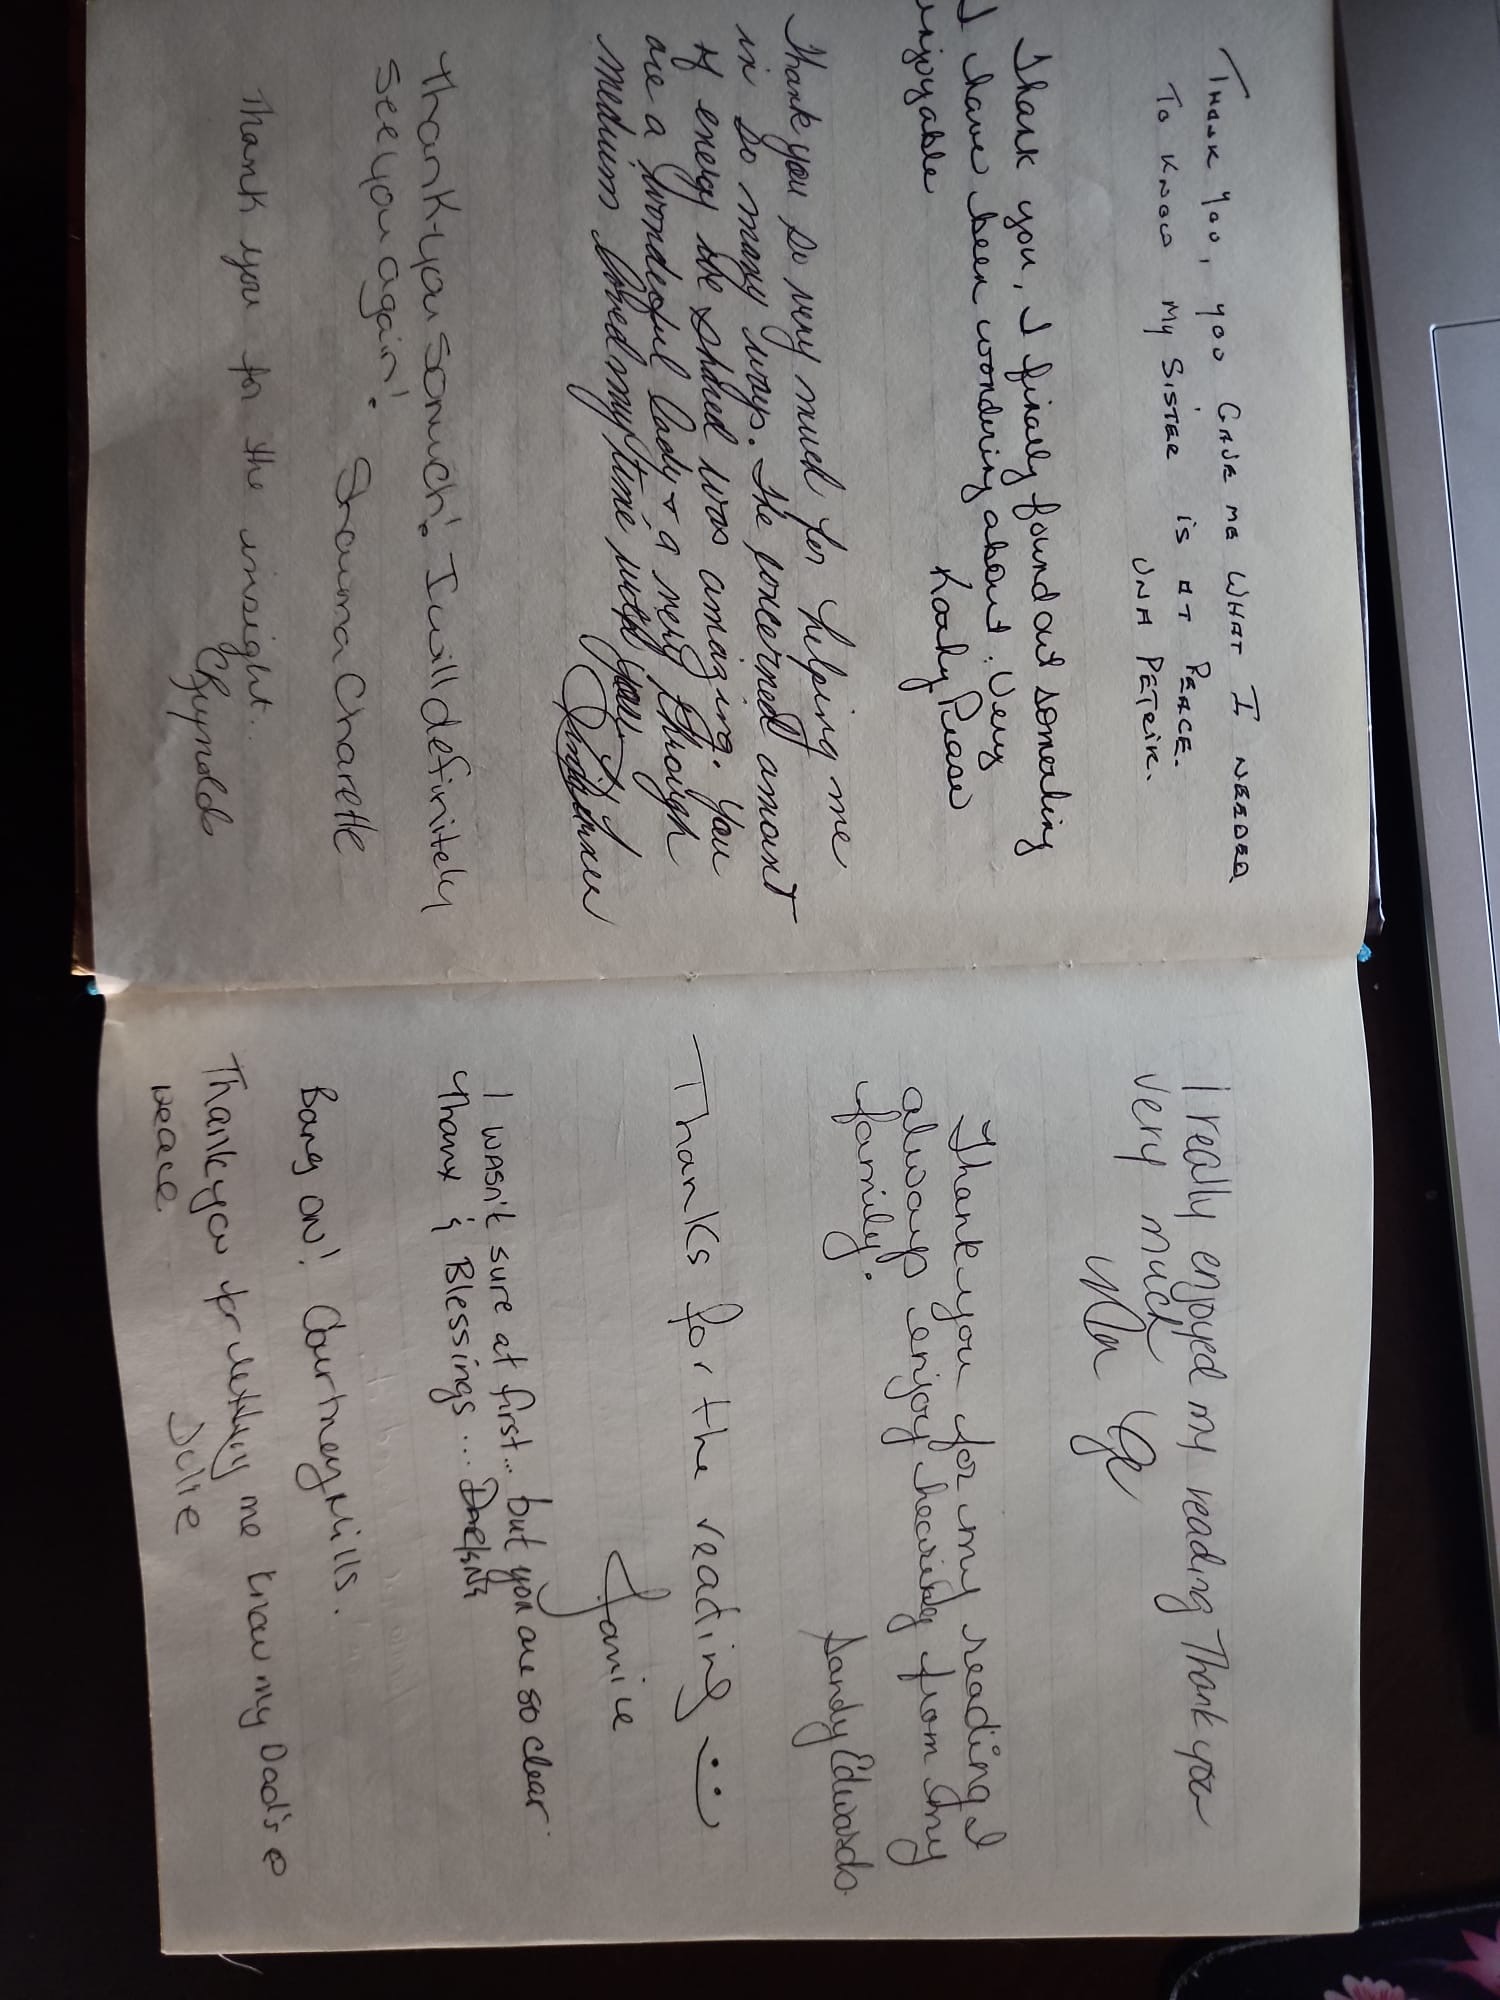 THANK YOU, YOU GAVE ME WHAT I NEEDED
TO KNOW MY SISTER IS AT PEACE.
UNA PETRIK.
Thank you, I finally found out someting
I have been wondering about. Very
enjoyable
Kathy Pease
Thank you so very much for helping me
in so many ways. The concerned amount
of energy she shared was amazing. You
are a wonderful lady & a very through
medium loved my time with you.
Thank-you so much! I will definitely
see you again!
Shauna Charette
Thank you for the insight..
CReynolds
I really enjoyed my reading Thank you
very much
Thank you for my reading I
always enjoy hearing from my
family.
Sandy Edwards
Thanks for the reading :)
Janice
I wasn't sure at first... but you are so clear.
Thanx & Blessings...
Bang on! Courtney Mills.
Thank you for letting me know my Dad's @
peace
Julie